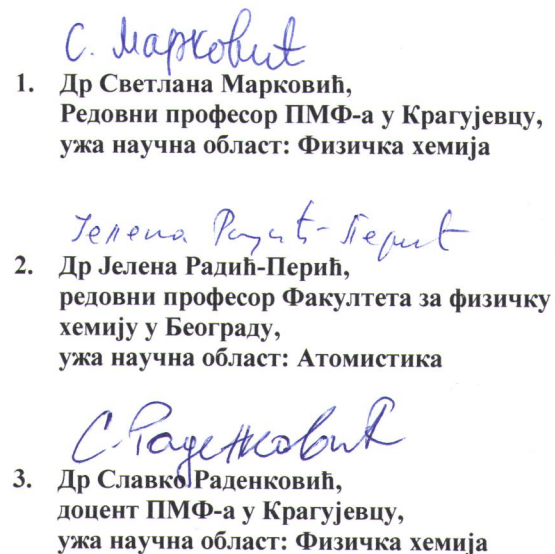 С. Марковић
1. Др Светлана Марковић,
Редовни професор ПМФ-а у Крагујевцу,
ужа научна област: Физичка хемија
Јелена Радић-Перић
2. Др Јелена Радић-Перић,
редовни професор Факултета за физичку
хемију у Београду,
ужа научна област: Атомистика
С. Раденковић
3. Др Славко Раденковић,
доцент ПМФ-а у Крагујевцу,
ужа научна област: Физичка хемија